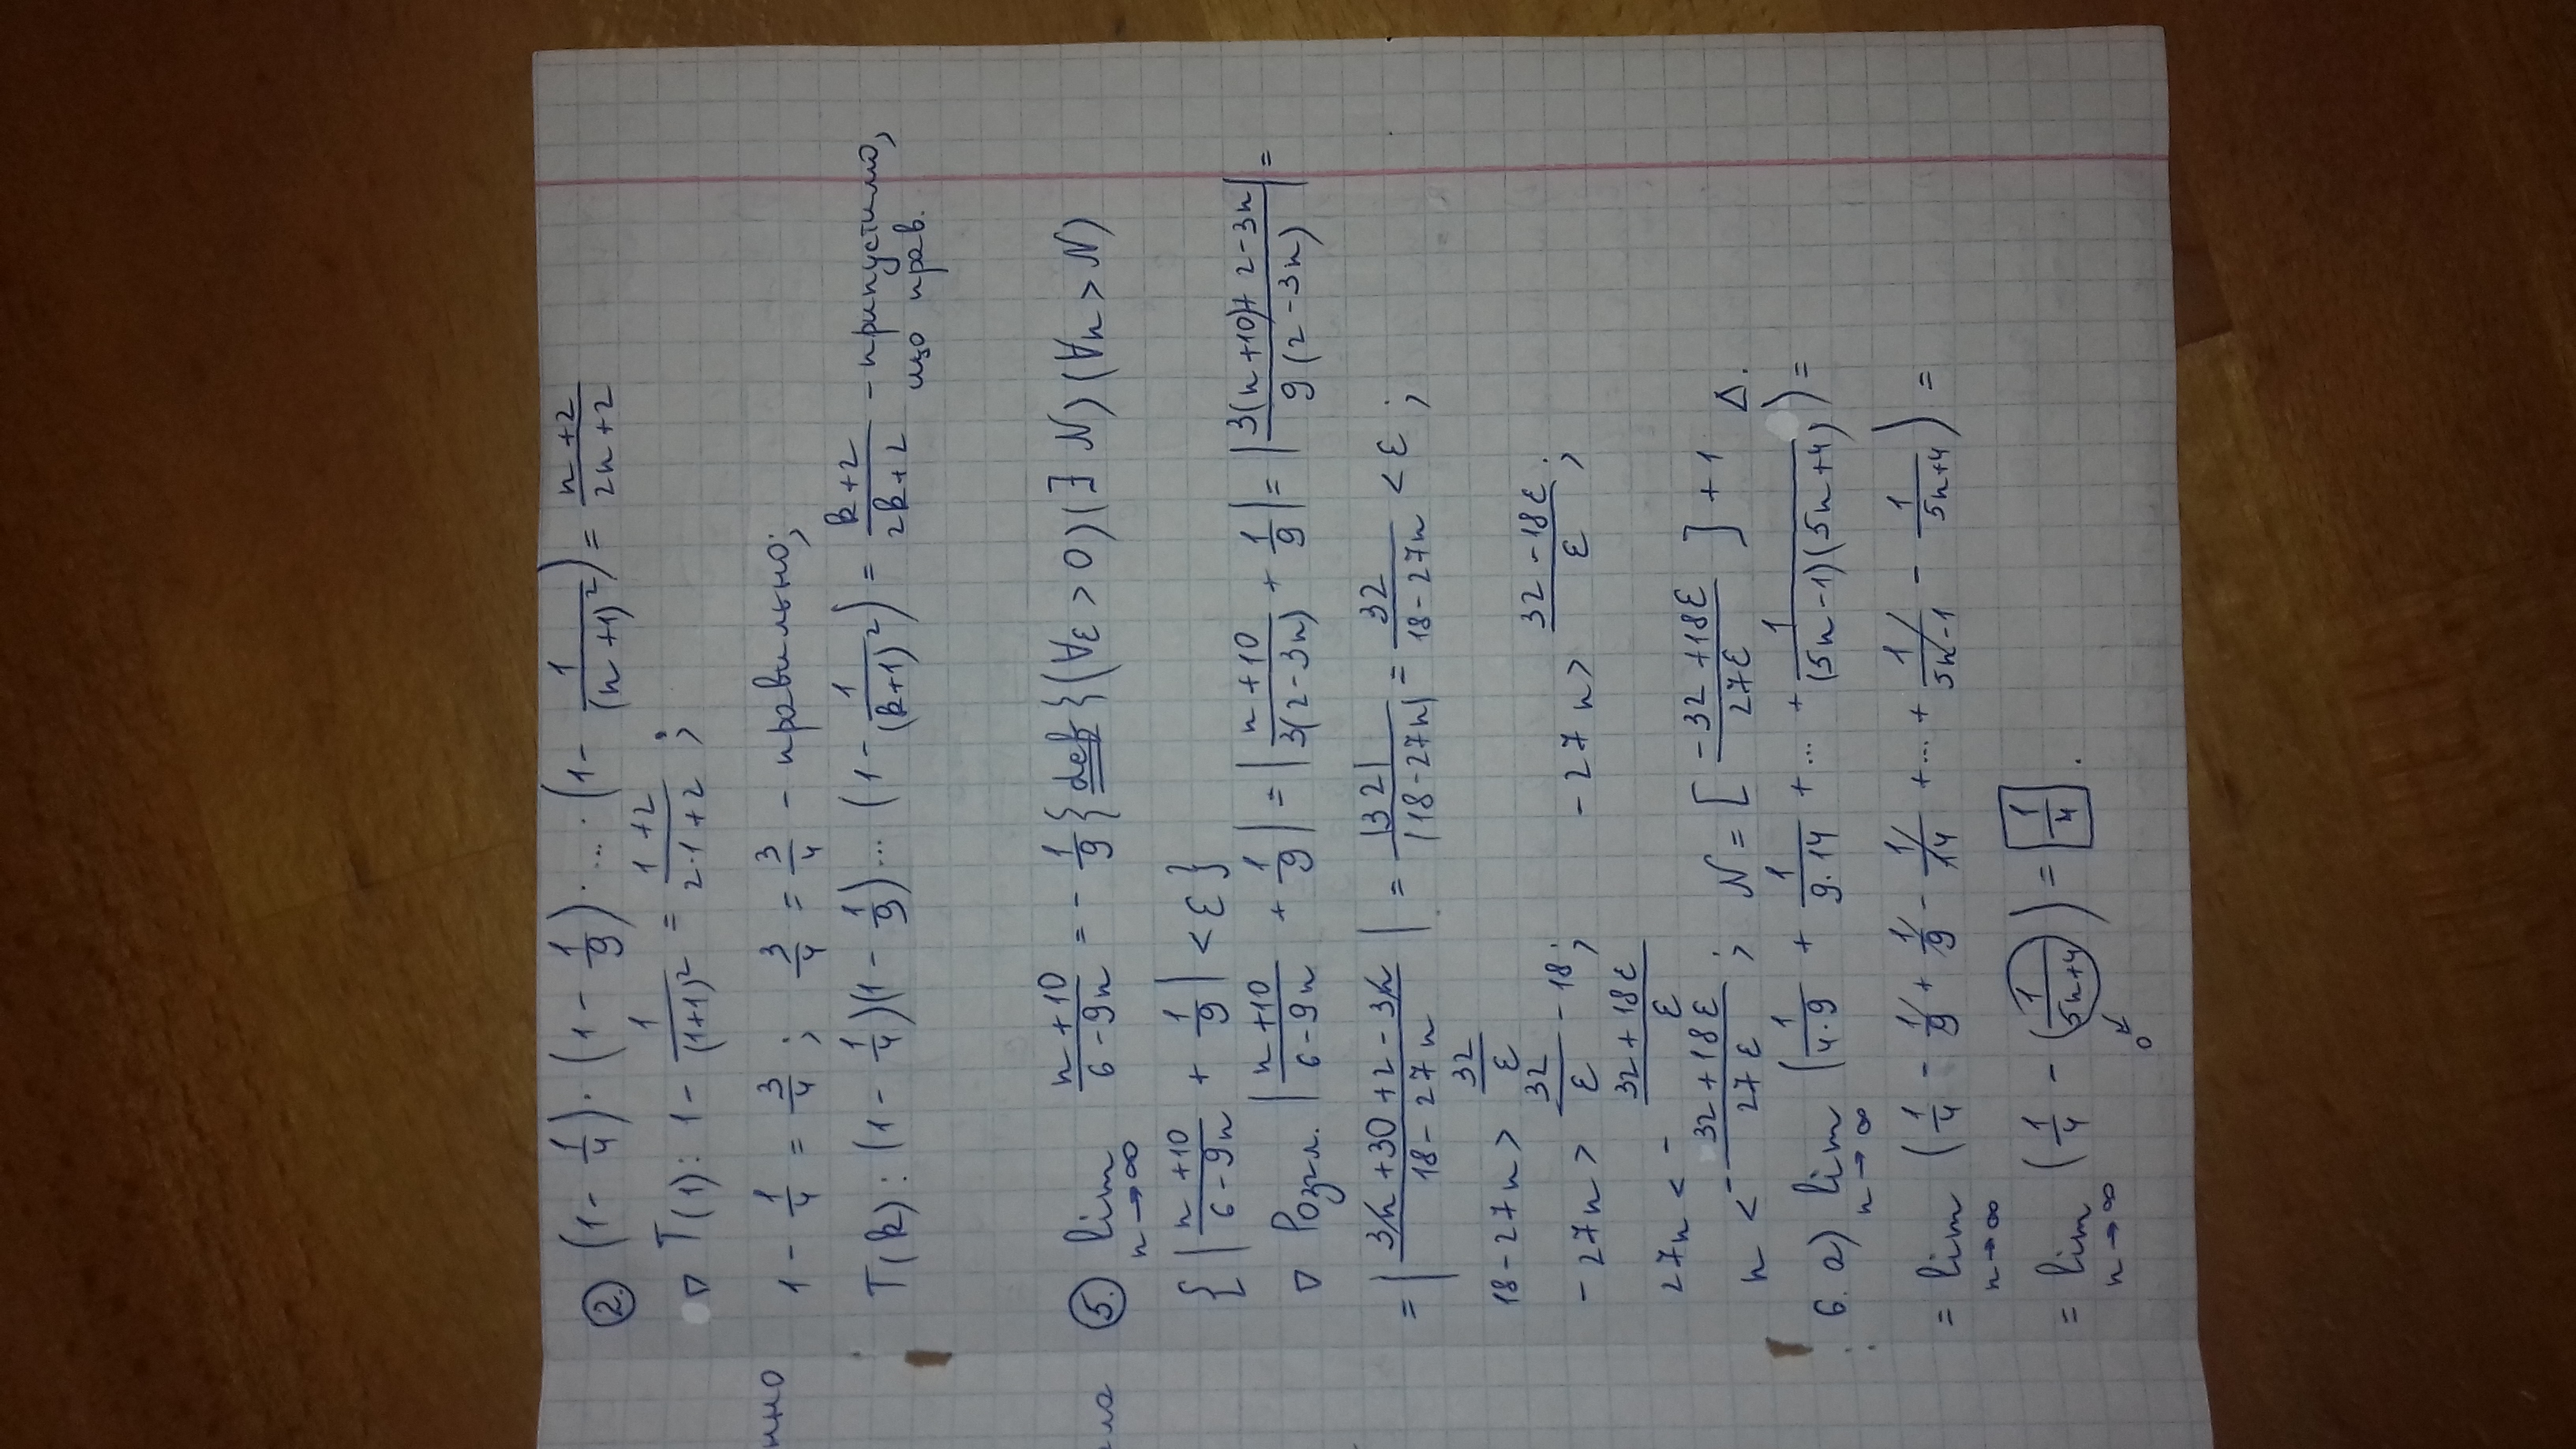 нно
ла
② (1 - 1/4) · (1 - 1/9) · ... · (1 - 1/(n+1)²) = (n+2)/(2n+2)
▽ T(1): 1 - 1/(1+1)² = (1+2)/(2·1+2) ;
1 - 1/4 = 3/4 ; 3/4 = 3/4 - правильно;
T(k): (1 - 1/4)(1 - 1/9)... (1 - 1/(k+1)²) = (k+2)/(2k+2) - припустимо,
що прав.
⑤. lim n→∞ (n+10)/(6-9n) = - 1/9 { def } {(∀ε > 0)(∃ N)(∀n > N)
{ | (n+10)/(6-9n) + 1/9 | < ε}
▽ Розгл. | (n+10)/(6-9n) + 1/9 | = | (n+10)/(3(2-3n)) + 1/9 | = | (3(n+10)+2-3n)/(9(2-3n)) | =
= | (3n+30+2-3n)/(18-27n) | = |32|/|18-27n| = 32/(18-27n) < ε ;
18-27n > 32/ε
-27n > 32/ε - 18 ; -27n > (32-18ε)/ε ;
27n < - (32+18ε)/ε
n < - (32+18ε)/(27ε) ; N = [ (-32+18ε)/(27ε) ] + 1 Δ.
6. а) lim n→∞ ( 1/(4·9) + 1/(9·14) + ... + 1/((5n-1)(5n+4)) ) =
= lim n→∞ ( 1/4 - 1/9 + 1/9 - 1/14 + ... + 1/(5n-1) - 1/(5n+4) ) =
= lim n→∞ ( 1/4 - (1/(5n+4)) ) = 1/4 .
0